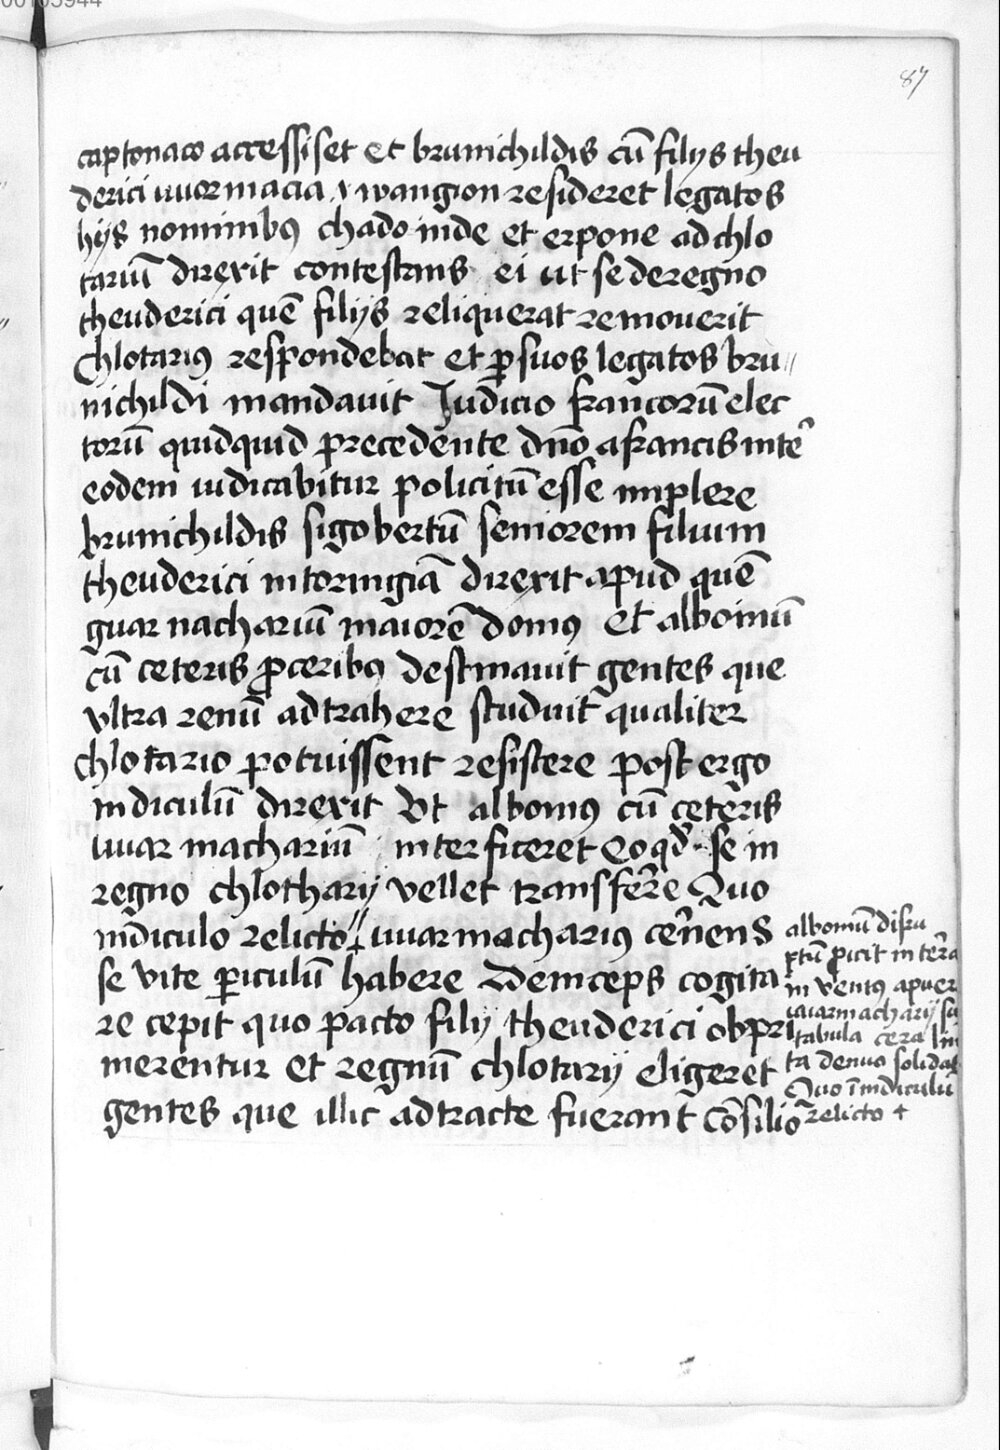 00105944
87
captonaco accessisset et brunichildis cū filijs theu
derici uuormacia x wangion resideret legatos
hijs nominibꝯ chado inde et erpone ad chlo
tariū direxit contestans ei ut se deregno
theuderici quē filijs reliquerat remouerit
Chlotariꝯ respondebat et ꝑ suos legatos bru〃
nichildi mandauit Judicio francorū elec
torū quidquid precedente dn̄o afrancis inter̄
eodem iudicabitur policitū esse implere
brunichildis sigobertū seniorem filium
theuderici intoringiā direxit apud quē
guarnachariū maiorē domꝯ et alboinū
cū ceteris ꝓceribꝯ destinauit gentes que
vltra renū adtrahere studuit qualiter
chlotario potuissent resistere post ergo
indiculū direxit vt albonꝯ cū ceteris
uuarmachariū interficeret eo qd̄ se in
regno chlotharij vellet transferr̄e Quo
indiculo relicto ⸗ uuarmachariꝯ cern̄ens
se vite ꝑiculū habere deinceps cogita
re cepit quo pacto filij theuderici obpri
merentur et regnū chlotarij eligeret
gentes que illic adtracte fuerant cōsilio
albonū disru
ptū ꝓicit in terr̄a
in ventꝯ a puer
uuarmacharij su
tabula cera lini
ta denuo solidat
Quo ī indiculū
relicto +